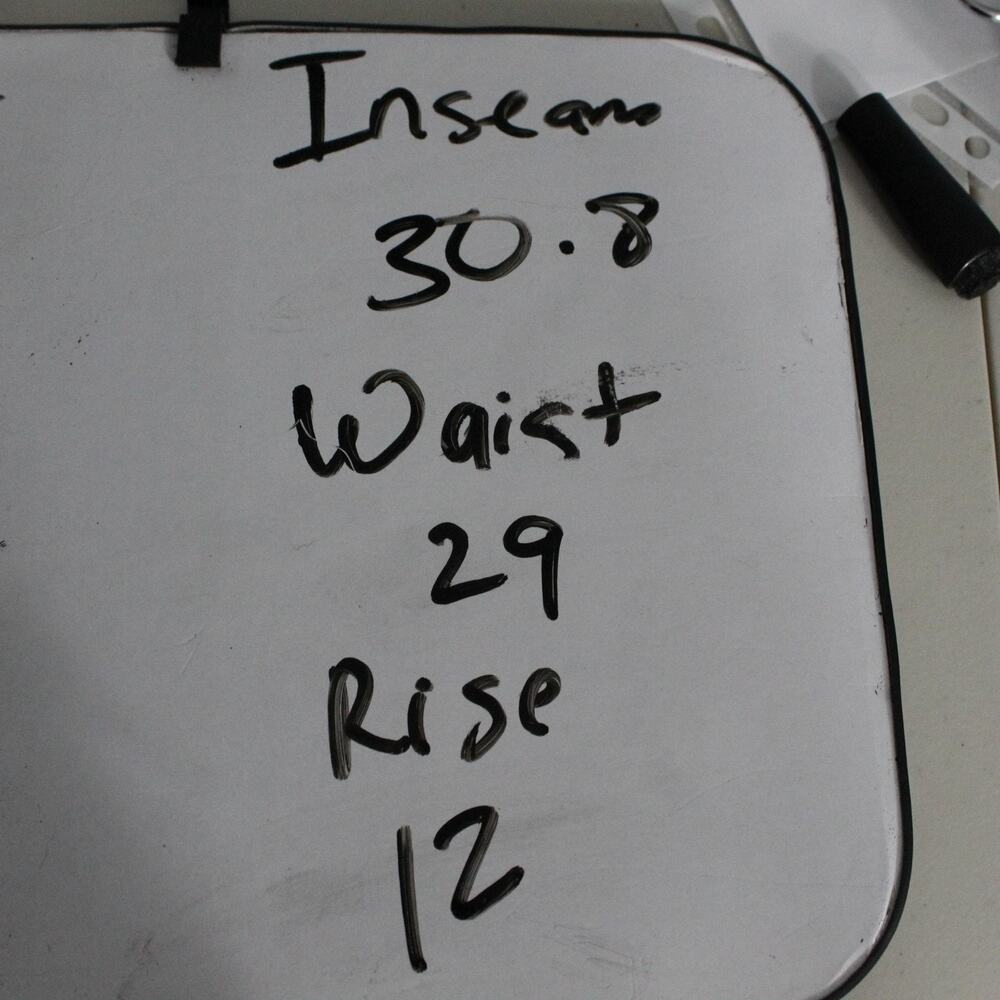 Inseam
30.8
Waist
29
Rise
12